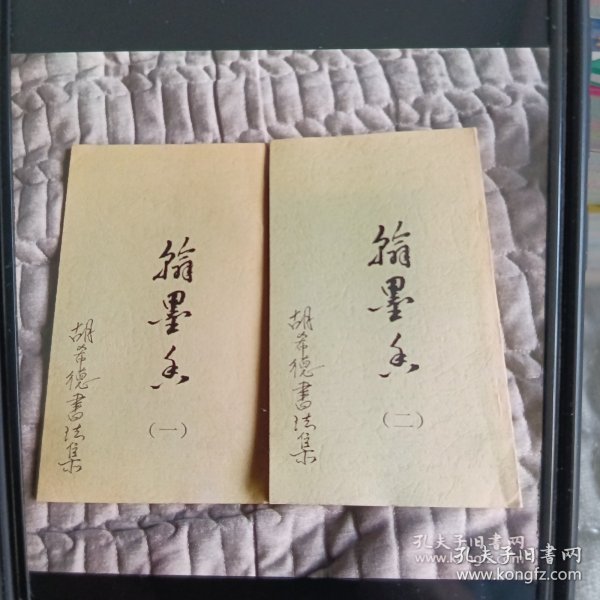 翰墨香
(一)
胡希德書法集
翰墨香
(二)
胡希德書法集
孔夫子旧书网
孔夫子旧书网
www.kongfz.com